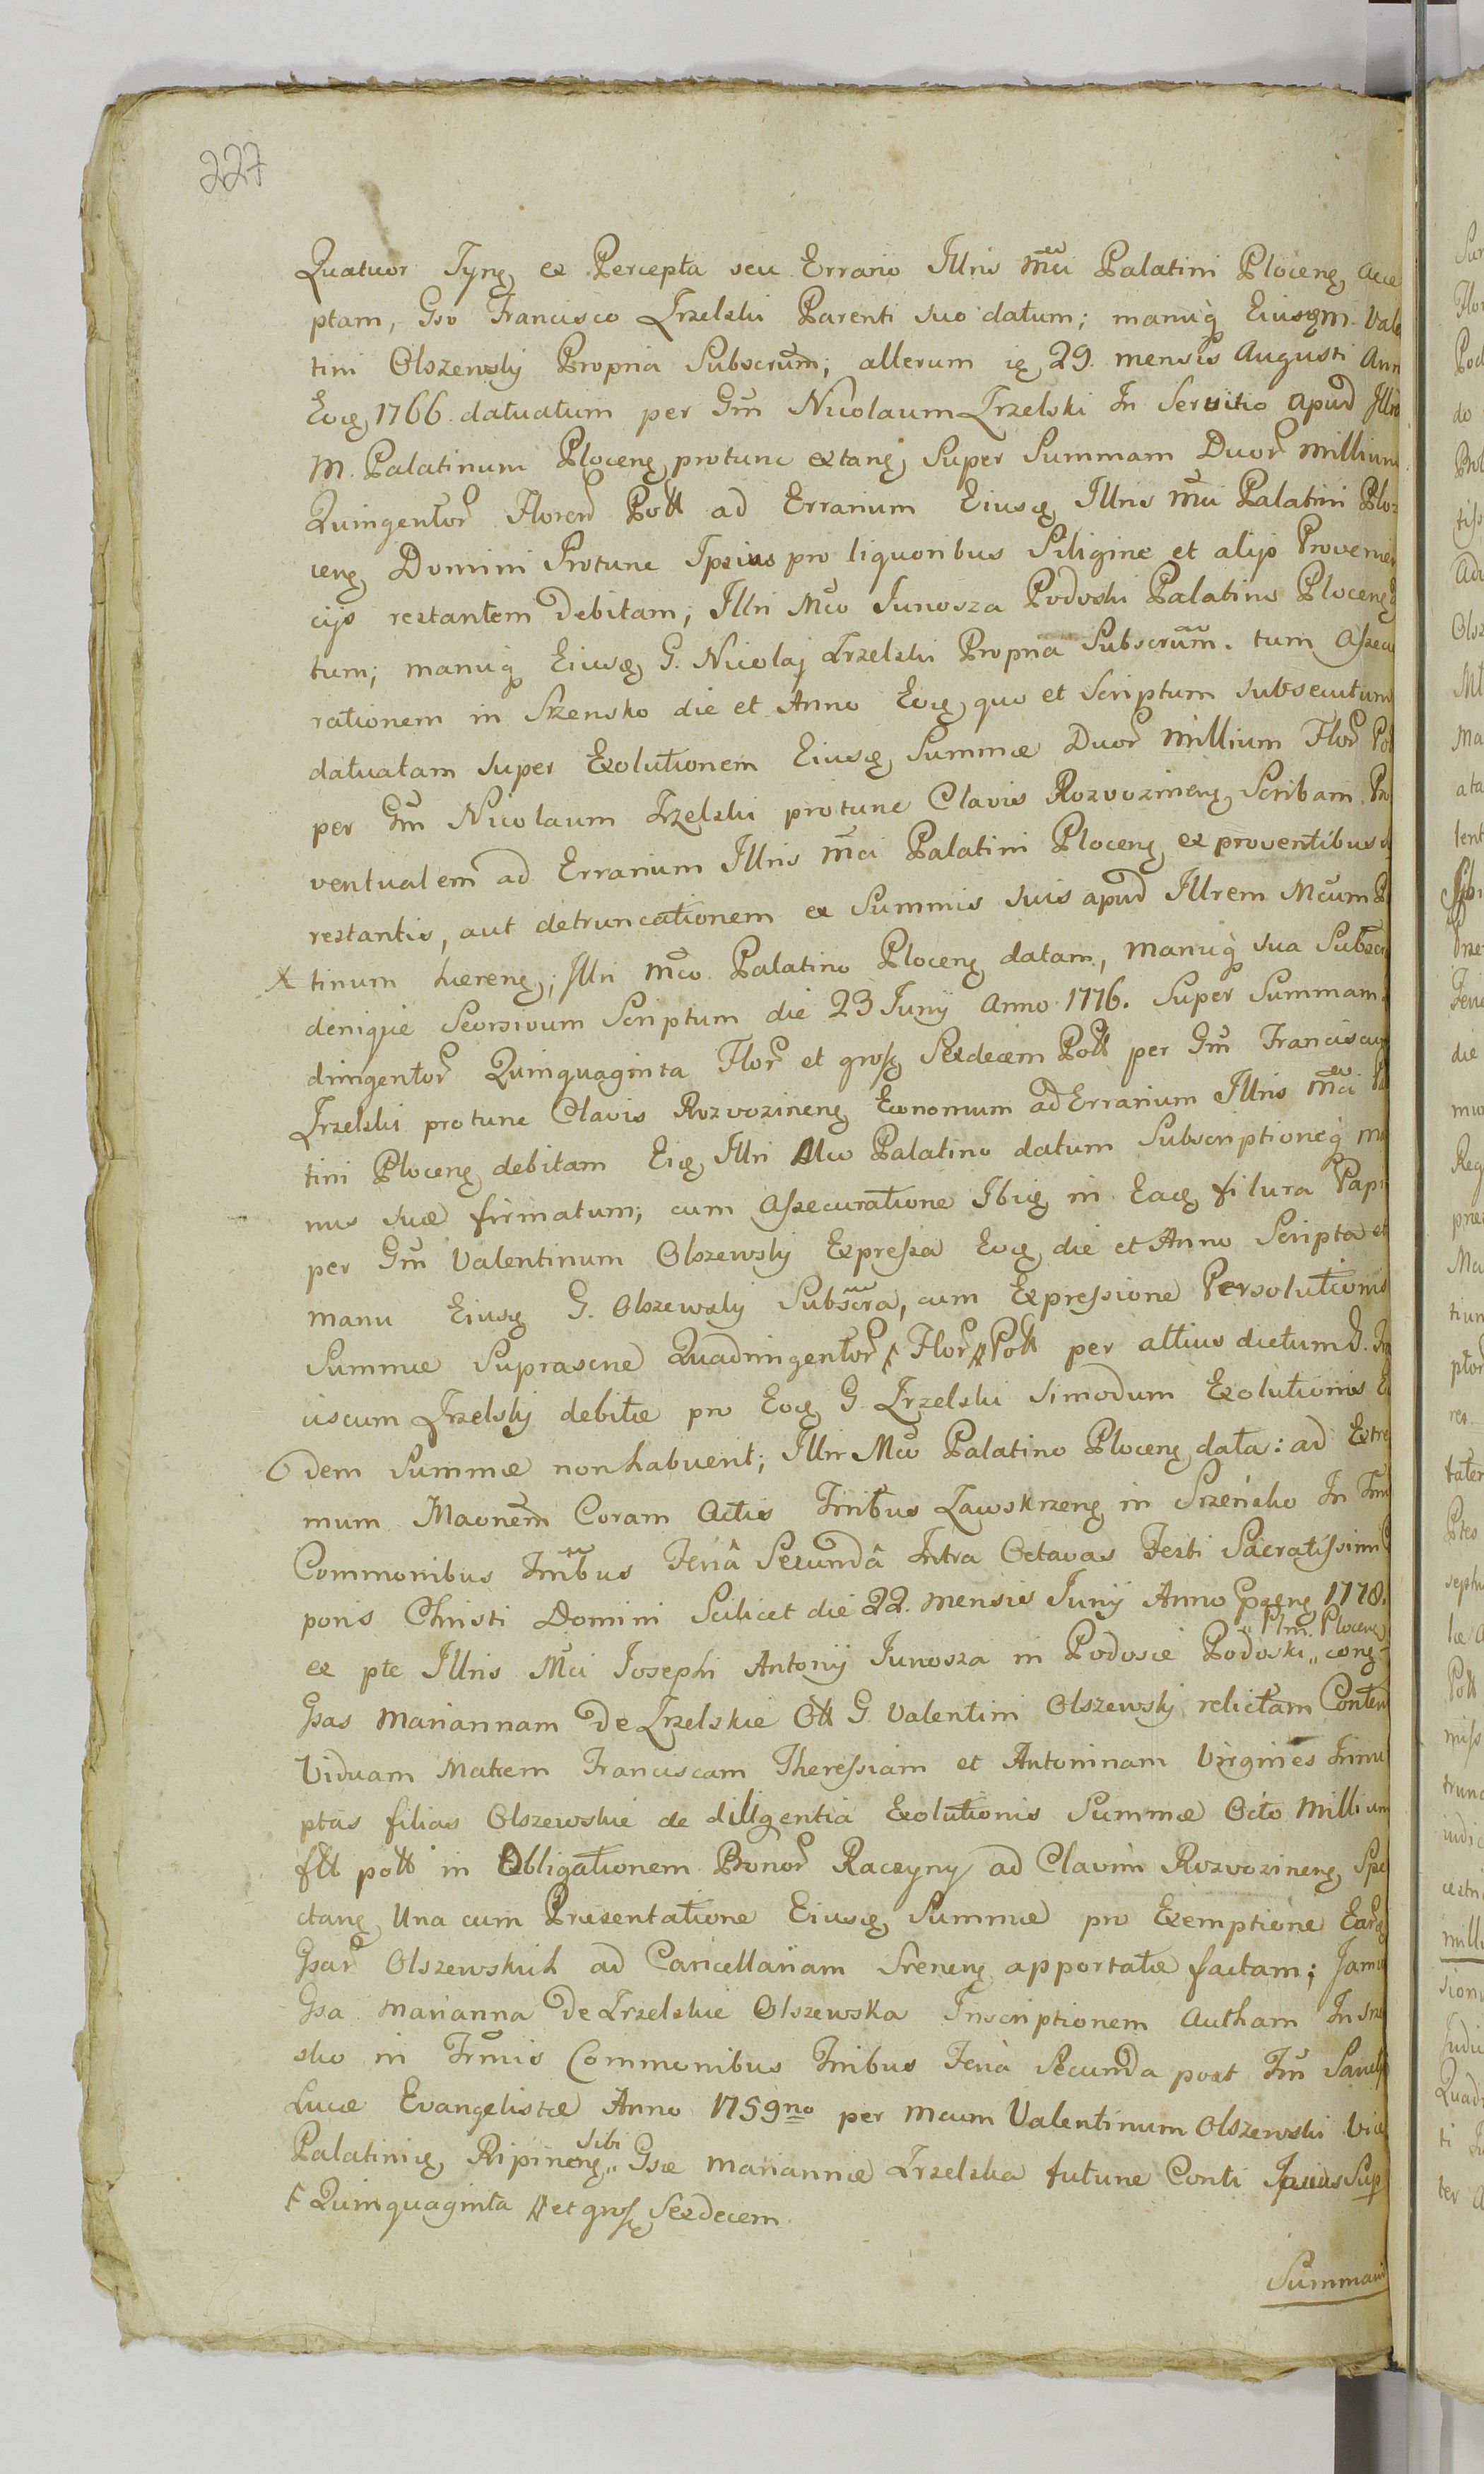 227
Quatuor Tynę ex Percepta seu Errario Illris Mci Palatini Plocenę acce
ptam, Gso Francisco Trzelski Parenti suo datum; manuq́ Eiusę m. Vale
tini Olszewsky Propria Subscrum; alterum ię 29. mensis Augusti Ann
Eoę 1766. datuatum per Gm Nicolaum Trzelski In Seruitio apud Illr
M. Palatinum Plocenę protunc extanę Super Summam Duor Millium
Quingentor Floren Poll ad Errarium Eiusę Illris Mci Palatini Plo:
cenę Domini Protunc Ipsius pro liquoribus Siligine et alijs Provenien
cijs restantem Debitam; Illri Mco Junosza Podoski Palatino Plocenę
tum; manuq́ Eiusę G. Nicolaj Trzelski Propria Subscrum. tum Assecu
rationem in Srzensko die et Anno Eoę quo et Scriptum subsecutum
datuatam super Exolutionem Eiusę Summæ Duor Millium Flor Pol
per Gm Nicolaum Trzelski protunc Clavis Rozvozinenę Scribam Pro
ventualem ad Errarium Illris Mci Palatini Plocenę ex proventibus
restantis, aut detruncationem ex Summis suis apud Illrem Mcum Pa
X tinum hærenę; Illri Mco Palatino Plocenę datam, manuq́ sua Subscr
denique Seorsivum Scriptum die 23 Juny Anno 1776. Super Summam
dringentor Quinquaginta Flor et grosę Sexdecem Poll per Gm Franciscum
Trzelski protunc Clavis Rozvozinenę Economum ad Errarium Illris Mci Pa
tini Plocenę debitam Eię Illri Mco Palatino datum Subscriptioneq́ ma
nus suæ firmatum; cum Assecuratione Ibię in Eaę filura Papi
per Gm Valentinum Olszewsky Expressa Eoę die et Anno Scripta et
manu Eiusę G. Olszewsky Subscra, cum Expressione Persolutionis
Summæ Suprascne Quadringentor Flor Poll per altius dictum G. Fra
ciscum Trzelsky debitæ pro Eoę G. Trzelski simodum Exolutionis E
dem Summæ non habuerit; Illri Mco Palatino Plocenę data: ad Extre
mum Maonem Coram Actis Trribus Zawskrzenę in Srzeńsko In Trm
Commonibus Trribus Feriâ Secundâ Intra Octavas Festi Sacratissimi
poris Christi Domini Scilicet die 22. mensis Juny Anno Præsenę 1778.
Plni. Plocenę
ex pte Illris Mci Josephi Antony Junosza in Podosie Podoski,, conę
Gsas Mariannam De Trzelskie Oll G. Valentini Olszewsky relictam Conten
Viduam Matrem Franciscam Theressiam et Antoninam Virgines Innu
ptas filias Olszewskie de diligentia Exolutionis Summæ Octo Millium
fll poll in Obligationem Bonor Raczyny ad Clavim Rozvozinenę Spe
ctanę Una cum Præsentatione Eiusę Summæ pro Exemptione Earę
Gsar Olszewskich ad Cancellariam Srenenę apportatæ factam; Jamę
Gsa Marianna De Trzelskie Olszewska Inscriptionem Autham In Srze
sko in Trmis Commonibus Trribus Feria Secunda post Fm Sancti
Lucæ Evangelistæ Anno 1759no per Mcum Valentinum Olszewski Vice
Palatinię Ripinenę,, sibi Gsæ Mariannæ Trzelska tutunc Conti Ipsius Sup
Quinquaginta et grosę Sexdecem
Summam